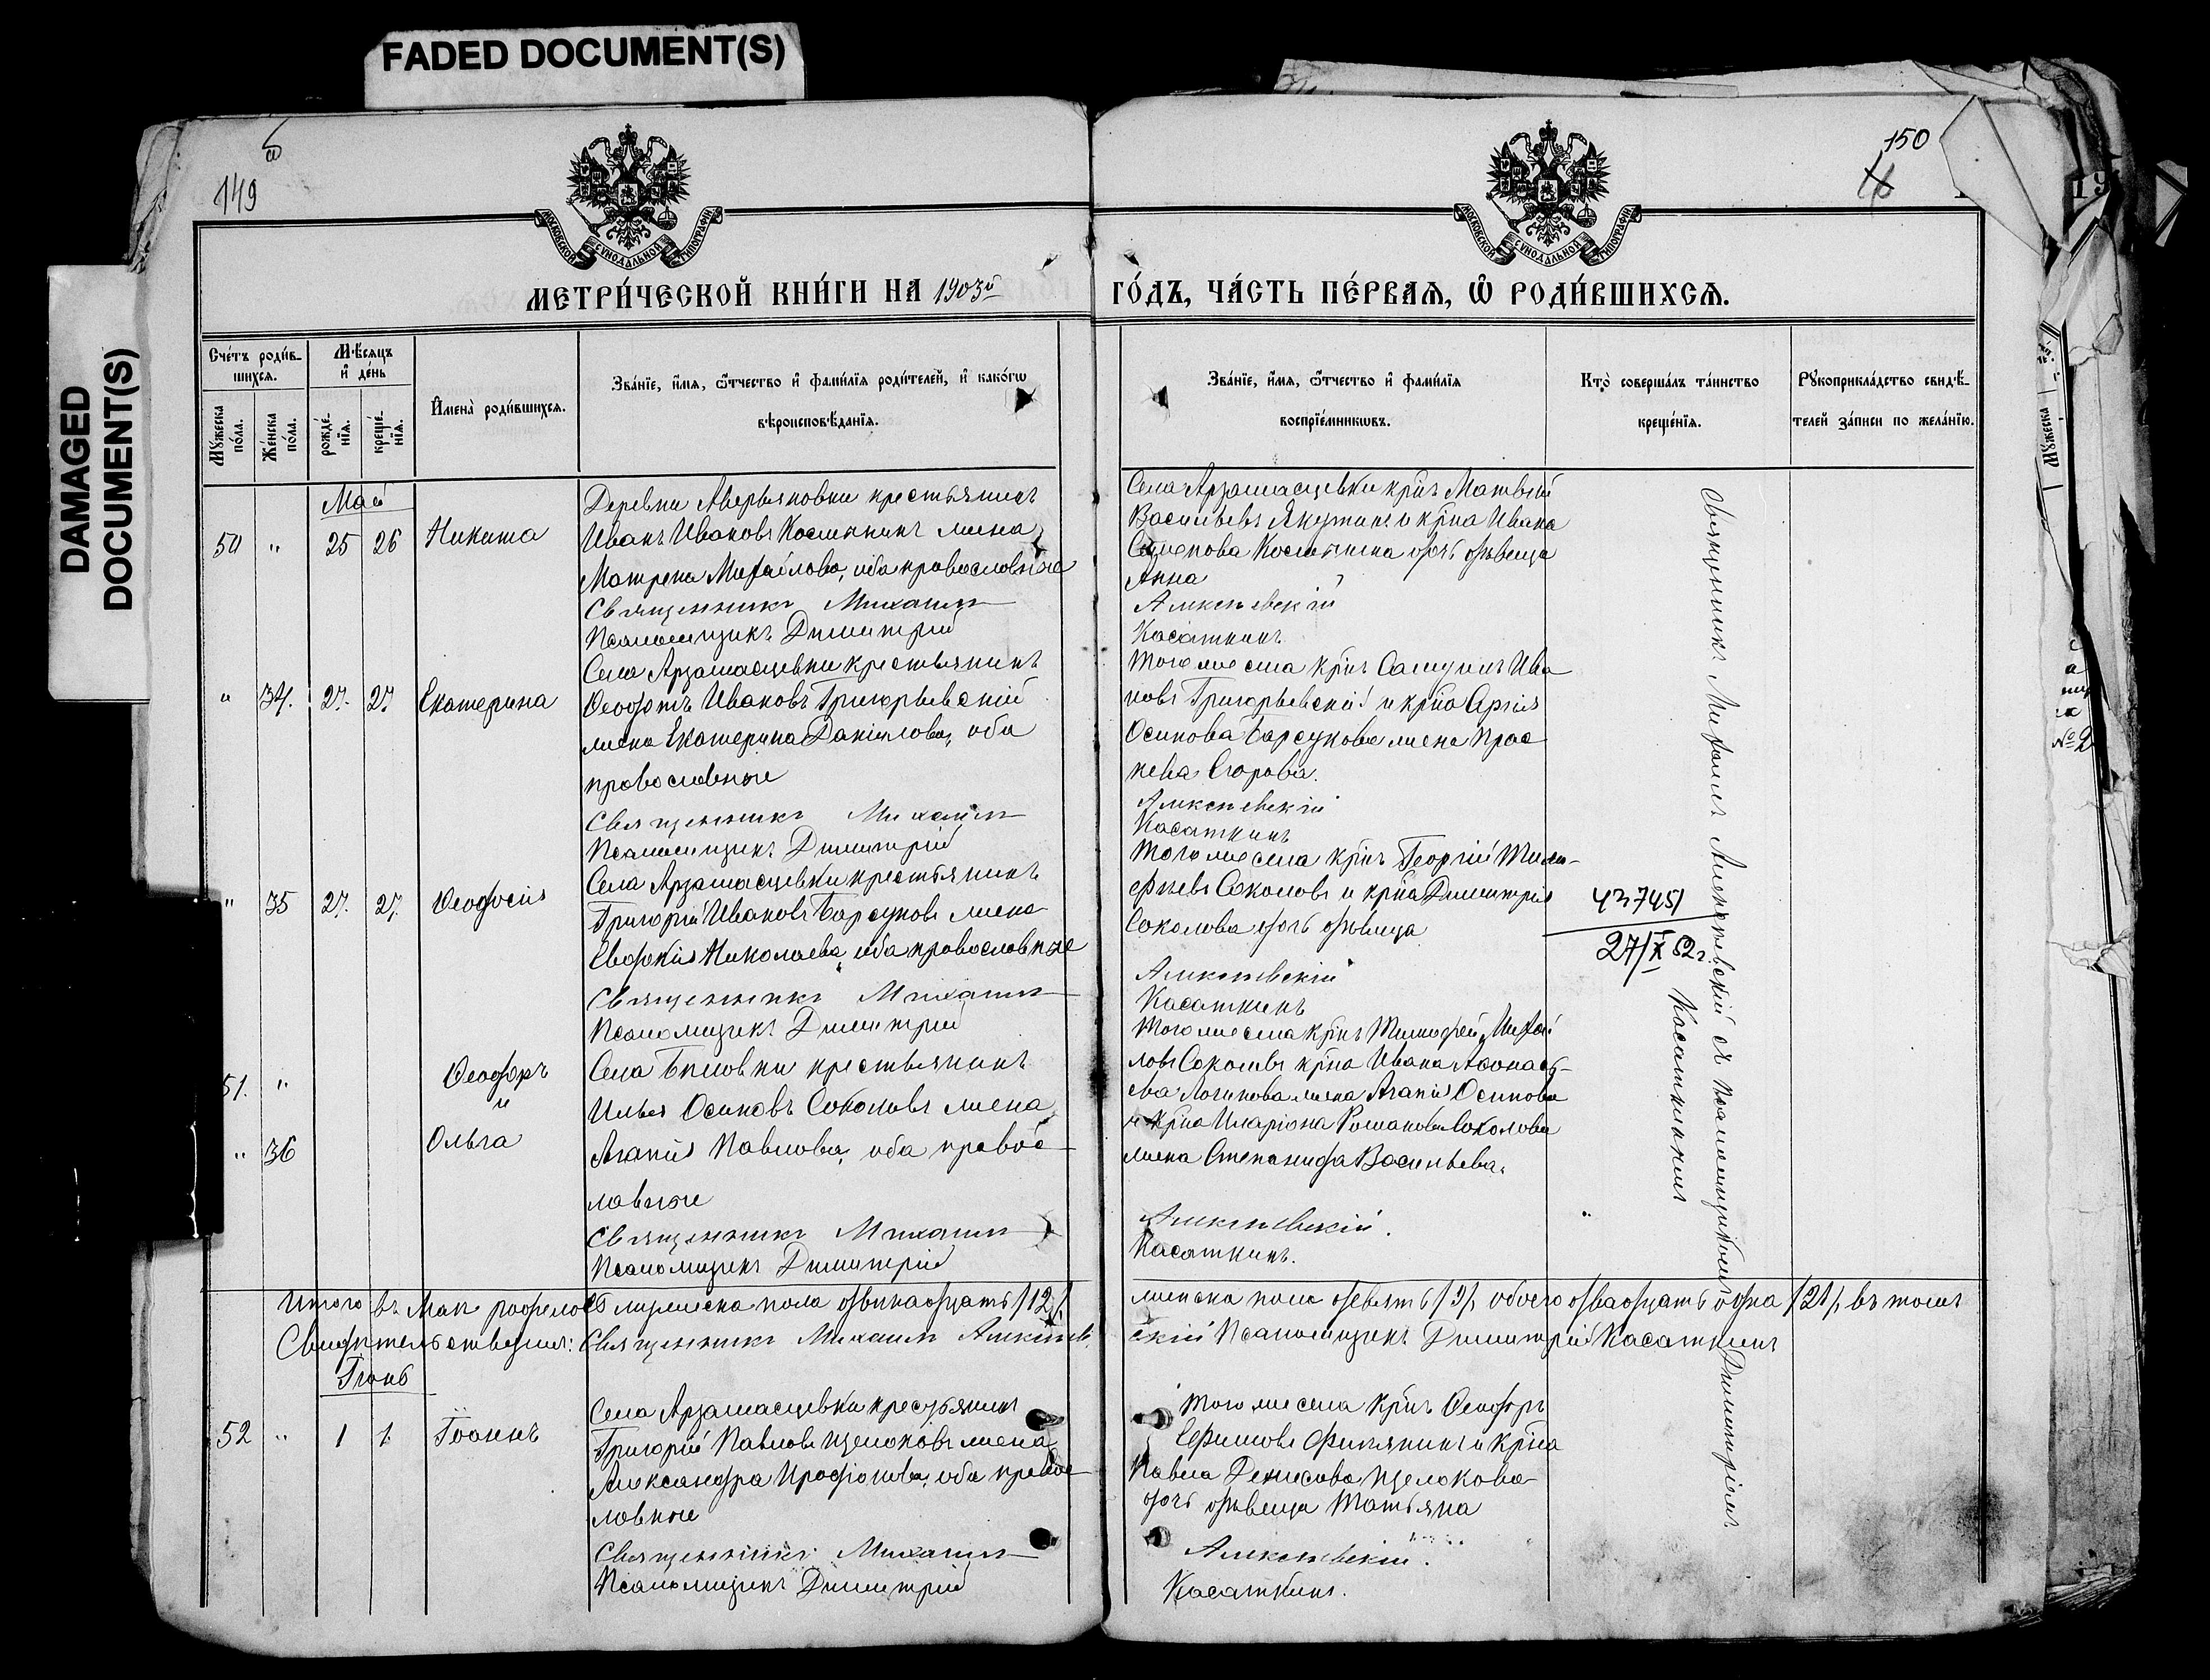 FADED DOCUMENT(S)
DAMAGED
DOCUMENT(S)
149
150
МОСКОВСКОЙ СѴНОДАЛЬНОЙ ТИПОГРАФІИ
МОСКОВСКОЙ СѴНОДАЛЬНОЙ ТИПОГРАФІИ
МЕТРИ́ЧЕСКОЙ КНИ́ГИ НА 1903й
ГО́ДЪ, ЧА́СТЬ ПЕ́РВАЯ, Ѡ РОДИ́ВШИХСЯ.
Сче́тъ роди́в-
шихся.
Мꙋ́жеска
по́ла.
Же́нска
по́ла.
Мѣ́сяцъ
и҆ де́нь
рожде́-
нїя.
креще́-
нїя.
И҆мена̀ роди́вшихся.
Зва́нїе, и҆́мя, ѻ҆́тчество и҆ фами́лїя роди́телей, и҆ како́гѡ
вѣроисповѣ́данїя.
Зва́нїе, и҆́мя, ѻ҆́тчество и҆ фами́лїя
воспрїе́мникѡвъ.
Кто̀ соверша́лъ та́инство
креще́нїя.
Рꙋкоприкла́дство свидѣ́-
телей за́писи по жела́нїю.
Май
50 " 25 26 Никита
Деревни Аверьяновки крестьянинъ
Иванъ Ивановъ Косынкинъ жена
Матрена Михайлова, оба православные
Священникъ Михаилъ
Псаломщикъ Димитрій
Села Арзамасцевки крнъ Матвѣй
Васильевъ Якушинъ и крна Ивана
Семенова Косынкина дочь дѣвица
Анна
Алексѣевскій
Касаткинъ
" 34. 27. 27. Екатерина
Села Арзамасцевки крестьянинъ
Ѳеодотъ Ивановъ Григорьевскій
жена Екатерина Даніилова, оба
православные
Священникъ Михаилъ
Псаломщикъ Димитрій
Того же села крнъ Самуилъ Ива
новъ Григорьевскій и крна Сергія
Осипова Барсукова жена Прас
кева Егорова.
Алексѣевскій
Касаткинъ
" 35 27. 27. Ѳеодосія
Села Арзамасцевки крестьянинъ
Григорій Ивановъ Барсуковъ жена
Евдокія Николаева, оба православные
Священникъ Михаилъ
Псаломщикъ Димитрій
Того же села крнъ Георгій Тимо-
феевъ Соколовъ и крна Димитрія
Соколова дочь дѣвица
Алексѣевскій
Касаткинъ
27/IX 52г.
51. " Ѳеодоръ
и
" 36 Ольга
Села Бѣловки крестьянинъ
Илья Осиповъ Соколовъ жена
Агапія Павлова, оба правос
лавные
Священникъ Михаилъ
Псаломщикъ Димитрій
Того же села крнъ Тимофей Михай
ловъ Соколовъ крна Ивана Аѳонась-
ева Логинова жена Агапія Осипова
и крна Иларіона Романова Соколова
жена Степанида Васильева.
Алексѣевскій.
Касаткинъ.
Священникъ Михаилъ Алексѣевскій съ псаломщикомъ Димитріемъ
Касаткинымъ
Итого въ Маѣ родилось мужеска пола двѣнадцать /12/, женска пола девять /9/, обоего двадцать одна /21/, въ томъ
Свидѣтельствуемъ: Священникъ Михаилъ Алексѣевскій Псаломщикъ Димитрій Касаткинъ
Іюнь
52 " 1 1. Іоаннъ
Села Арзамасцевки крестьянинъ
Григорій Павловъ Щелоковъ жена
Александра Продіонова, оба правос
лавные
Священникъ Михаилъ
Псаломщикъ Димитрій
Того же села крнъ Ѳеодоръ
Ефимовъ Филякинъ и крна
Павла Денисова Щелокова
дочь дѣвица Татьяна
Алексѣевскій.
Касаткинъ.